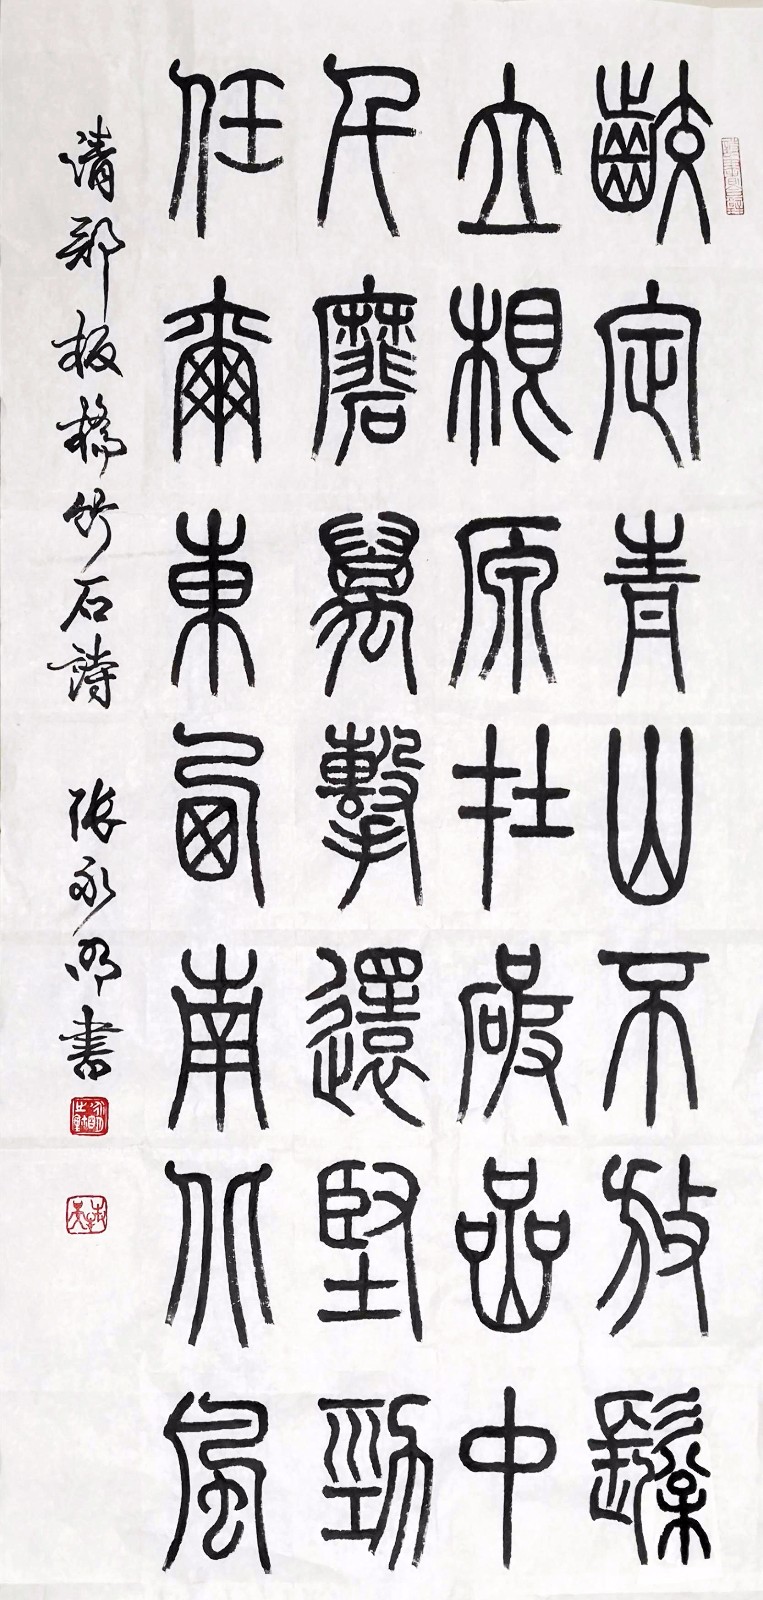 齩定青山不放鬆
立根原在破嵒中
千磨萬擊還堅勁
任爾東西南北風
清鄭板橋竹石詩 張永明書